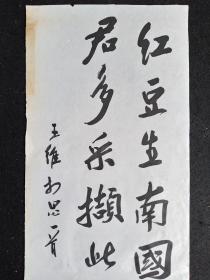 红豆生南國
君多采擷此
王维相思一首